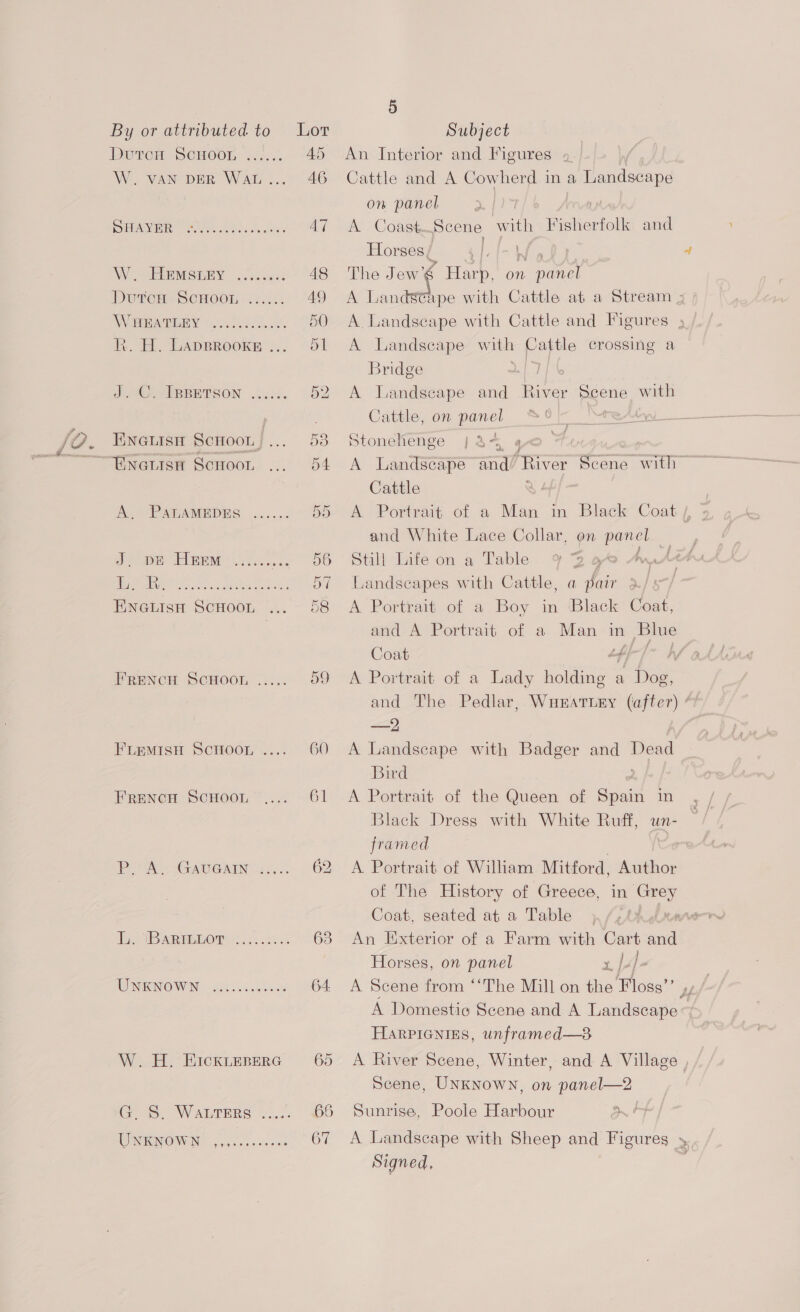 5
By or attributed to Lot Subject
Dutch School ...... 45 An Interior and Figures
W. van der Wal ... 46 Cattle and A Cowherd in a Landscape
on panel
Shayer ............... 47 A Coast Scene with Fisherfolk and
Horses
W. Hemsley ........ 48 The Jew's Harp, on panel
Dutch School ...... 49 A Landscape with Cattle at a Stream
Wheatley ............ 50 A Landscape with Cattle and Figures
R. H. Ladbrooke ... 51 A Landscape with Cattle crossing a
Bridge 2/7/6
J. C. Ibbetson ...... 52 A Landscape and River Scene with
Cattle, on panel
10. English School ... 53 Stonehenge
English School ... 54 A Landscape and River Scene with
Cattle
A. Palamedes ...... 55 A Portrait of a Man in Black Coat
and White Lace Collar, on panel
J. de Heem ......... 56 Still Life on a Table
57 Landscapes with Cattle, a pair
English School ... 58 A Portrait of a Boy in Black Coat,
and A Portrait of a Man in Blue
Coat
French School ..... 59 A Portrait of a Lady holding a Dog,
and The Pedlar, Wheatley (after)
—2
Flemish School .... 60 A Landscape with Badger and Dead
Bird
French School .... 61 A Portrait of the Queen of Spain in
Black Dress with White Ruff, un-
framed
P. A. Gaugain ..... 62 A Portrait of William Mitford, Author
of The History of Greece, in Grey
Coat, seated at a Table
L. Barillot ......... 63 An Exterior of a Farm with Cart and
Horses, on panel
Unknown ............ 64 A Scene from “The Mill on the Floss”
A Domestic Scene and A Landscape
Harpignies, unframed—3
W. H. Eickleberg 65 A River Scene, Winter, and A Village
Scene, Unknown, on panel—2
G. S. Walters ..... 66 Sunrise, Poole Harbour
Unknown ............ 67 A Landscape with Sheep and Figures
Signed,